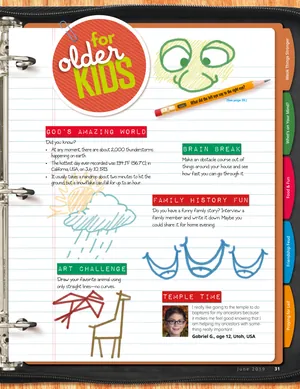 for
older
KIDS
What did the left eye say to the right eye?
GOD'S AMAZING WORLD
Did you know?
• At any moment, there are about 2,000 thunderstorms
happening on earth.
• The hottest day ever recorded was 134.1°F (56.7°C) in
California, USA, on July 10, 1913.
• It usually takes a raindrop about two minutes to hit the
ground, but a snowflake can fall for up to an hour.
BRAIN BREAK
Make an obstacle course out of
things around your house and see
how fast you can go through it.
FAMILY HISTORY FUN
Do you have a funny family story? Interview a
family member and write it down. Maybe you
could share it for home evening.
ART CHALLENGE
Draw your favorite animal using
only straight lines—no curves.
TEMPLE TIME
I really like going to the temple to do
baptisms for my ancestors because
it makes me feel good knowing that I
am helping my ancestors with some-
thing really important.
Gabriel G., age 12, Utah, USA
What's on Your Mind?
Food & Fun
Friendship Field
June 2019 31